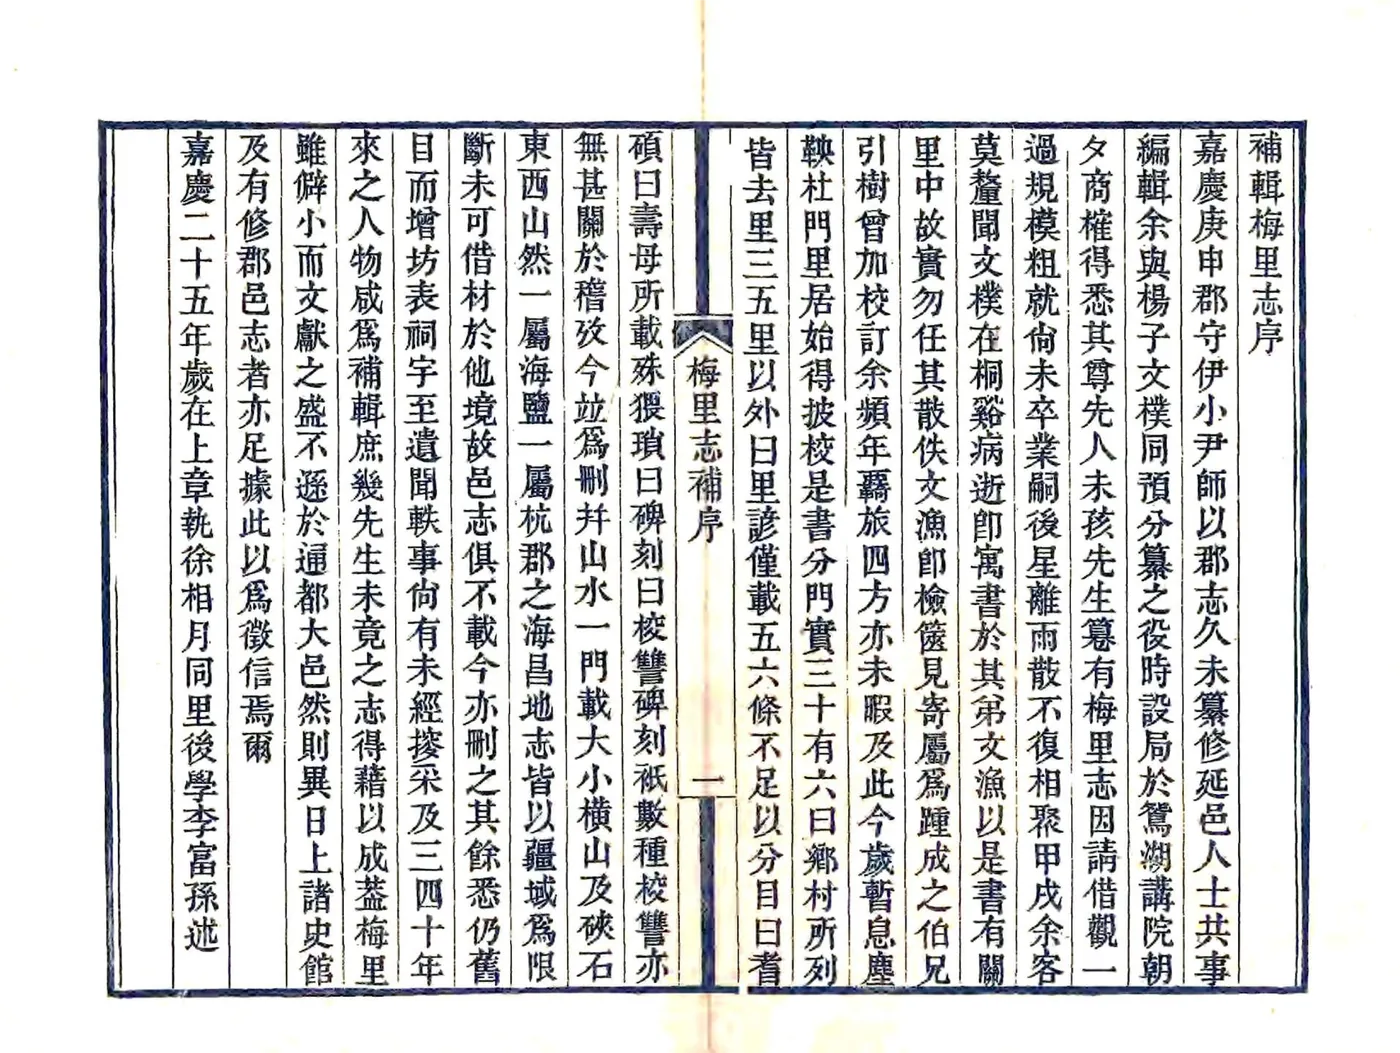 補輯梅里志序
嘉慶庚申郡守伊小尹師以郡志久未纂修延邑人士共事
編輯余與楊子文樸同預分纂之役時設局於鴛湖講院朝
夕商榷得悉其尊先人未孩先生纂有梅里志因請借觀一
過規模粗就尙未卒業嗣後星離雨散不復相聚甲戌余客
莫釐聞文樸在桐谿病逝卽寓書於其弟文漁以是書有關
里中故實勿任其散佚文漁卽檢篋見寄屬爲踵成之伯兄
引樹曾加校訂余頻年羇旅四方亦未暇及此今歲暫息塵
鞅杜門里居始得披校是書分門實三十有六曰鄉村所列
皆去里三五里以外曰里諺僅載五六條不足以分目曰耆
梅里志補序
一
碩曰壽母所載殊猥瑣曰碑刻曰校讐碑刻祇數種校讐亦
無甚關於稽攷今竝爲刪幷山水一門載大小橫山及硤石
東西山然一屬海鹽一屬杭郡之海昌地志皆以疆域爲限
斷未可借材於他境故邑志俱不載今亦刪之其餘悉仍舊
目而增坊表祠宇至遺聞軼事尙有未經搜采及三四十年
來之人物咸爲補輯庶幾先生未竟之志得藉以成葢梅里
雖僻小而文獻之盛不遜於通都大邑然則異日上諸史館
及有修郡邑志者亦足據此以爲徵信焉爾
嘉慶二十五年歲在上章執徐相月同里後學李富孫述